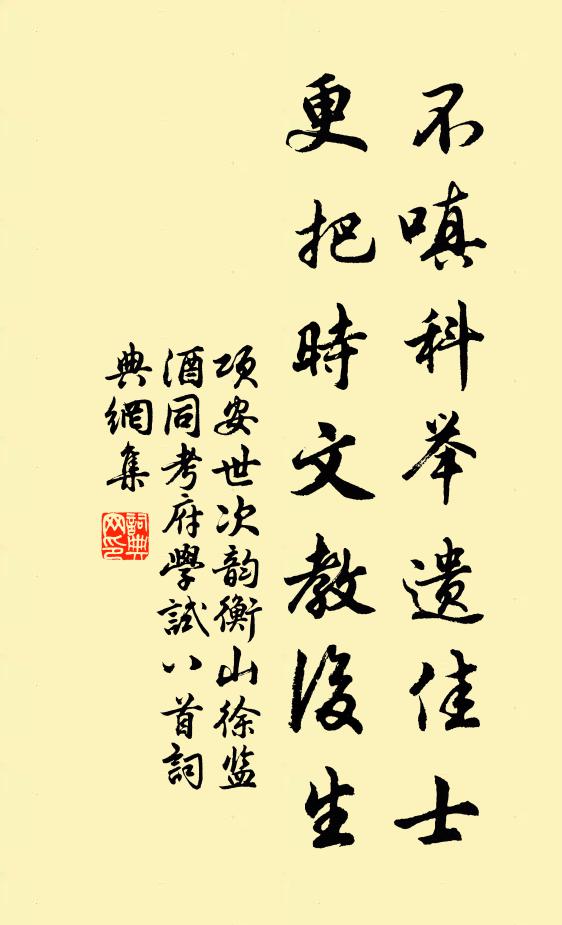 不嗔科举遗佳士
更把時文教後生
项安世次韵衡山徐监
酒同考府學試八首詞
典網集
詞典网印